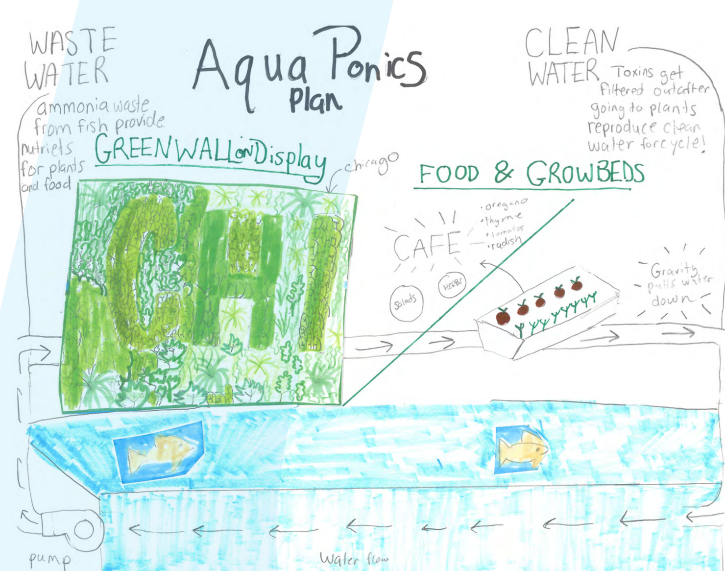 WASTE
WATER
ammonia waste
from fish provide
nutriets
for plants
and food
Aqua Ponics
Plan
CLEAN
WATER
Toxins get
filtered out after
going to plants
reproduce clean
water for cycle!
GREENWALL on Display
chicago
CHI
FOOD & GROWBEDS
• oregano
• thyme
• tomatos
• radish
CAFE
Salads
HERBS
Gravity
pulls water
down
pump
Water flow